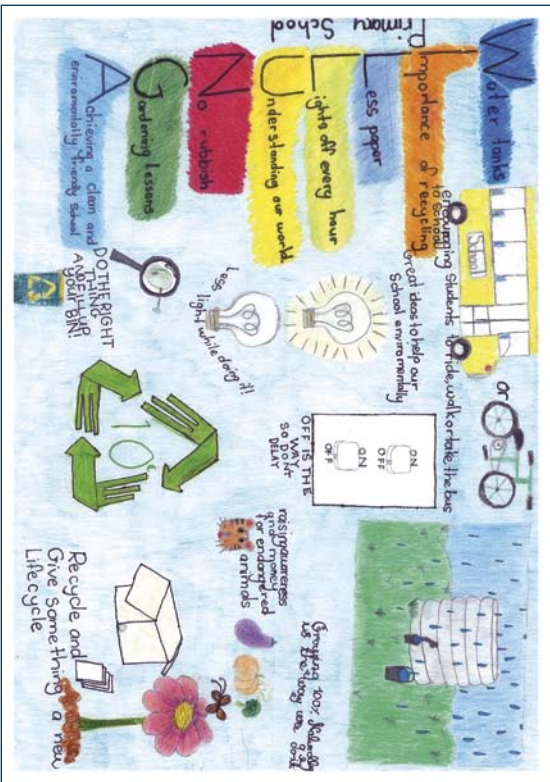 Water tanks
Importance of recycling
Less paper
Lights off every hour
Understanding our world
No rubbish
Gardening lessons
Achieving a clean and
enviromentally friendly School
Primary School
School
encouraging students to ride, walk or take the bus
to school
or
Great ideas to help our
School enviromentally
Less
light while doing it!
DO THE RIGHT
THING
AND FILL UP
YOUR BIN!
ON
OFF
ON
OFF
OFF IS THE
WAY
SO DON'T
DELAY
10c
raising awareness
and money
for endangered
animals
Growing
Naturally
is the way we
Recycle and
Give Something a new
Lifecycle